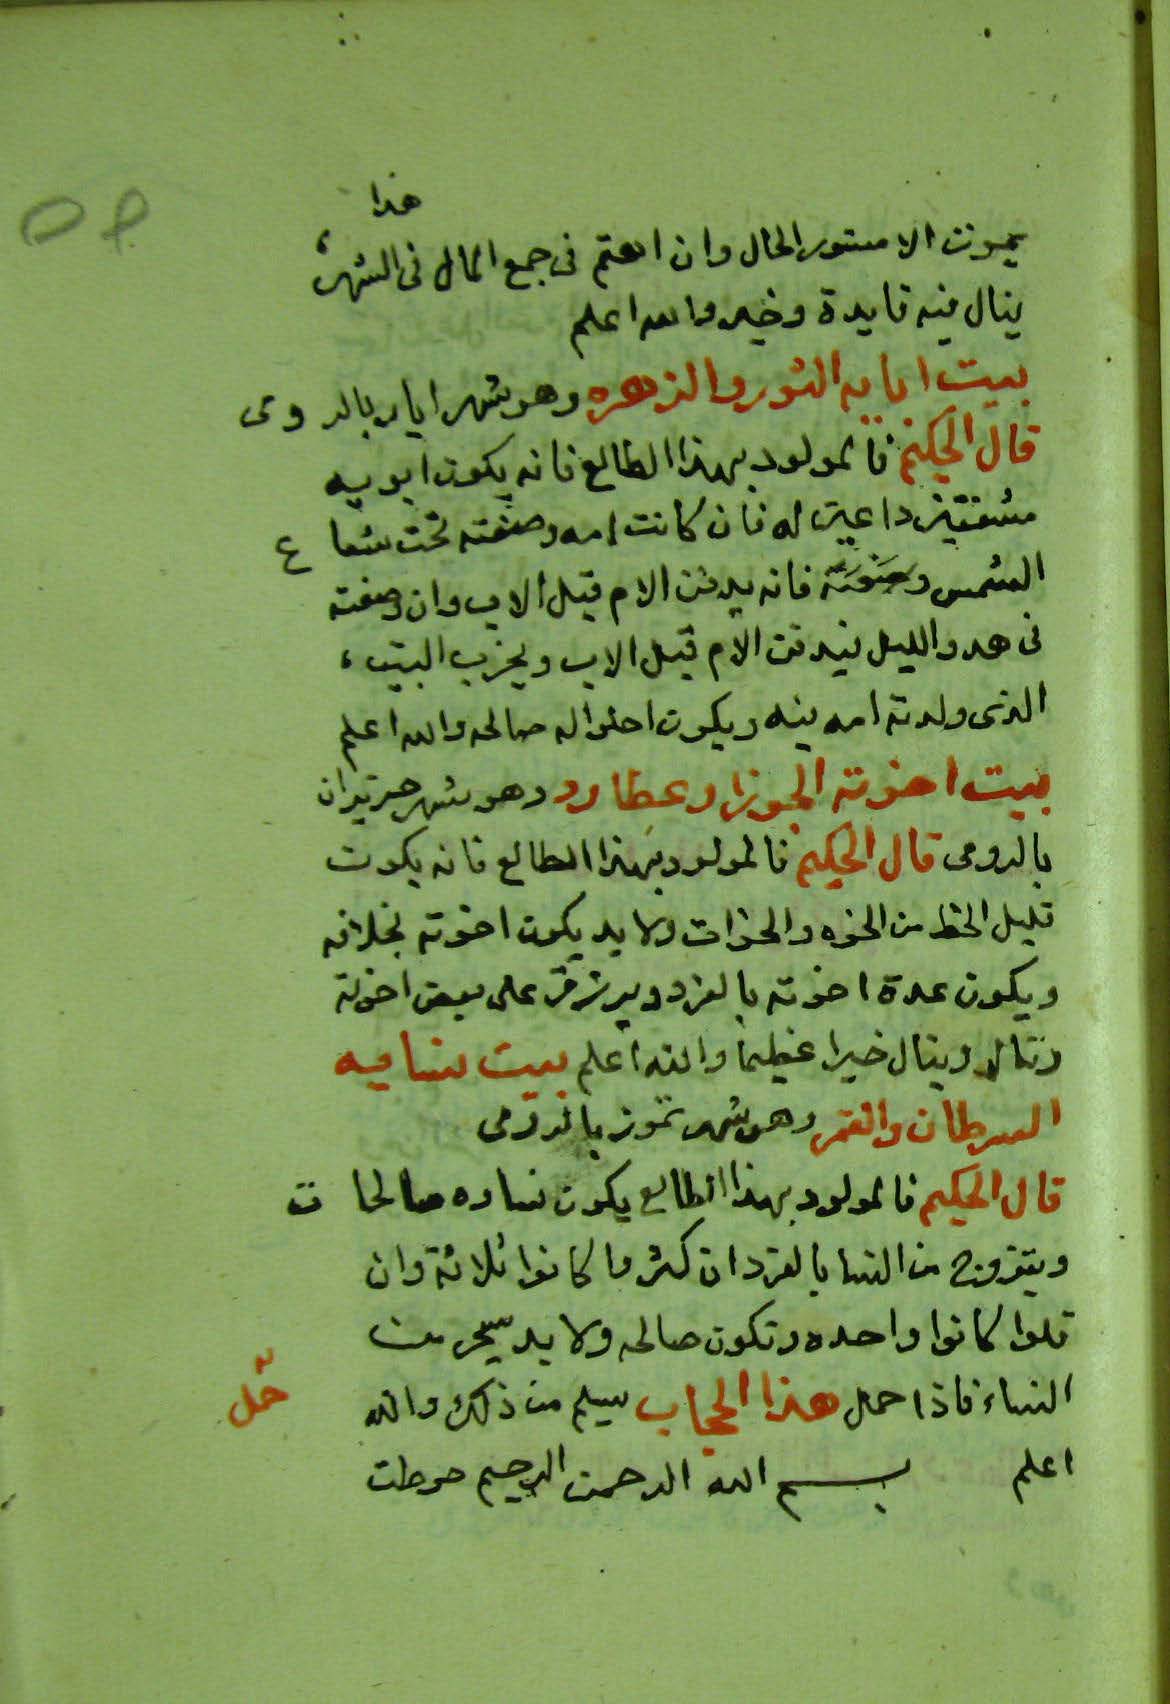 هذا
يموت الا مستور الحال وان اهتم فى جمع المال فى الشهر
ينال فيه فايدة وخير والله اعلم
بيت ابايه الثور والزهره وهو شهر ايار بالرومى
قال الحكيم فالمولود بهذا الطالع فانه يكون ابويه
مشفقين داعين له فان كانت امه وضعته تحت شعاع
الشمس فانه يدفن الام قبل الاب وان وضعته
فى هدو الليل فيدفن الام قبل الاب ويخرب البيت
الذى ولدته امه فيه ويكون احواله صالحه والله اعلم
بيت اخوته الجوزا وعطارد وهو شهر حزيران
بالرومى قال الحكيم فالمولود بهذا الطالع فانه يكون
قليل الحظ من الخوه والخوات ولا بد يكون اخوته بخلافه
ويكون عدة اخوته بالفرد ويرزق على بعض اخوته
وينال خيرا عظيما والله اعلم بيت نسايه
السرطان والقمر وهو شهر تموز بالرومى
قال الحكيم فالمولود بهذا الطالع يكون نساوه صالحات
ويتزوج من النسا بالفرد ان كثروا كانوا ثلاثة وان
قلوا كانوا واحده وتكون صالحه ولا بد يسحر من
النساء فاذا حمل هذا الحجاب يسلم من ذلك والله
اعلم بسم الله الرحمن الرحيم